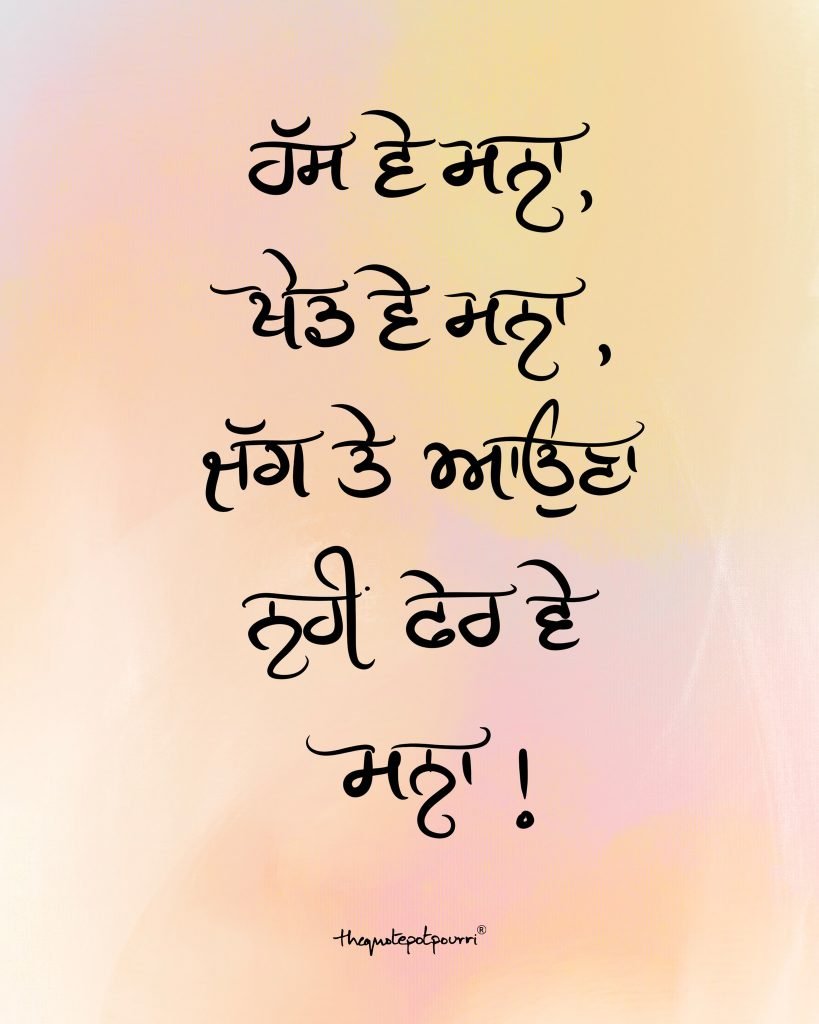 ਹੱਸ ਵੇ ਮਨਾ,
ਖੇਡ ਵੇ ਮਨਾ ,
ਜੱਗ ਤੇ ਆਉਣਾ
ਨਹੀਂ ਫੇਰ ਵੇ
ਮਨਾ !
thequotepotpourri®